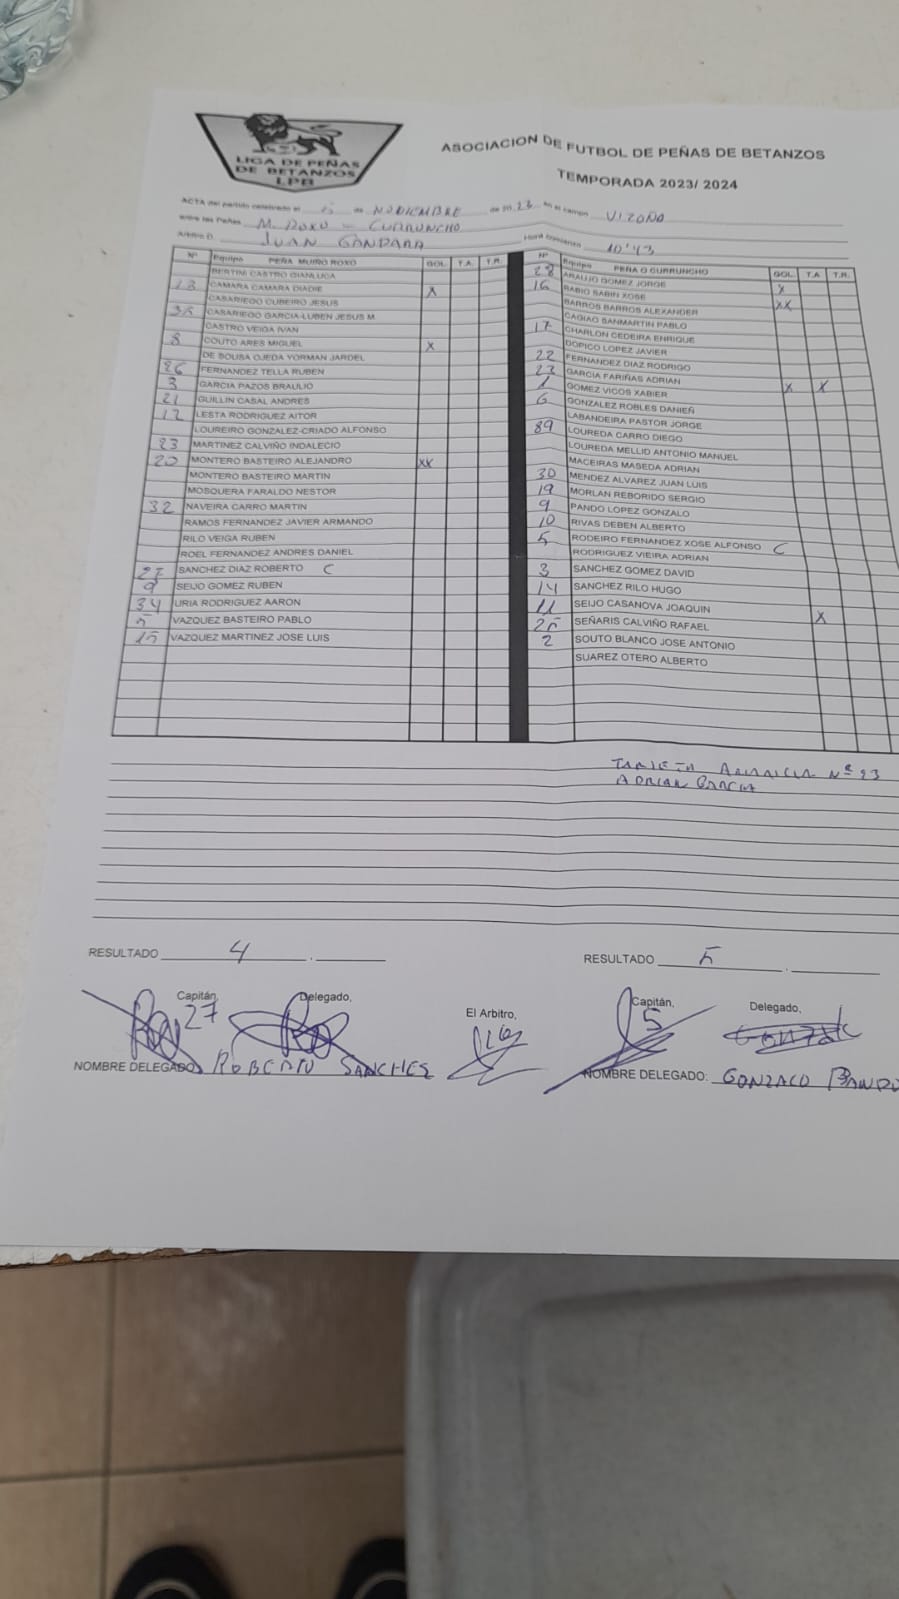 LIGA DE PEÑAS
DE BETANZOS
LPB
ASOCIACION DE FUTBOL DE PEÑAS DE BETANZOS
TEMPORADA 2023/ 2024
ACTA del partido celebrado el de NOVIEMBRE de 20 23 en el campo VIZOÑO
entre las Peñas M. ROXO - CURRUNCHO
Arbitro D. JUAN GANDARA Hora comienzo 10'43
Nº Equipo PEÑA MUIÑO ROXO GOL T.A. T.R.
BERTINI CASTRO GIANLUCA
CAMARA CAMARA DIADIE X
CASARIEGO CUBEIRO JESUS
CASARIEGO GARCIA-LUBEN JESUS M
CASTRO VEIGA IVAN
8 COUTO ARES MIGUEL X
DE SOUSA OJEDA YORMAN JARDEL
26 FERNANDEZ TELLA RUBEN
3 GARCIA PAZOS BRAULIO
21 GUILLIN CASAL ANDRES
LESTA RODRIGUEZ AITOR
LOUREIRO GONZALEZ-CRIADO ALFONSO
23 MARTINEZ CALVIÑO INDALECIO
20 MONTERO BASTEIRO ALEJANDRO XX
MONTERO BASTEIRO MARTIN
MOSQUERA FARALDO NESTOR
32 NAVEIRA CARRO MARTIN
RAMOS FERNANDEZ JAVIER ARMANDO
RILO VEIGA RUBEN
ROEL FERNANDEZ ANDRES DANIEL
27 SANCHEZ DIAZ ROBERTO C
9 SEIJO GOMEZ RUBEN
34 URIA RODRIGUEZ AARON
5 VAZQUEZ BASTEIRO PABLO
15 VAZQUEZ MARTINEZ JOSE LUIS
Nº Equipo PEÑA O CURRUNCHO GOL T.A T.R.
ARAUJO GOMEZ JORGE X
16 BABIO SABIN XOSE XX
BARROS BARROS ALEXANDER
CAGIAO SANMARTIN PABLO
17 CHARLON CEDEIRA ENRIQUE
DOPICO LOPEZ JAVIER
22 FERNANDEZ DIAZ RODRIGO
23 GARCIA FARIÑAS ADRIAN X X
1 GOMEZ VICOS XABIER
6 GONZALEZ ROBLES DANIEÑ
LABANDEIRA PASTOR JORGE
89 LOUREDA CARRO DIEGO
LOUREDA MELLID ANTONIO MANUEL
MACEIRAS MASEDA ADRIAN
30 MENDEZ ALVAREZ JUAN LUIS
19 MORLAN REBORIDO SERGIO
9 PANDO LOPEZ GONZALO
10 RIVAS DEBEN ALBERTO
5 RODEIRO FERNANDEZ XOSE ALFONSO C
RODRIGUEZ VIEIRA ADRIAN
3 SANCHEZ GOMEZ DAVID
14 SANCHEZ RILO HUGO
11 SEIJO CASANOVA JOAQUIN
25 SEÑARIS CALVIÑO RAFAEL X
2 SOUTO BLANCO JOSE ANTONIO
SUAREZ OTERO ALBERTO
TARJETA AMARILLA Nº 23
ADRIAN GARCIA
RESULTADO 4
RESULTADO 5
Capitán, Delegado, El Arbitro, Capitán, Delegado,
27 5
NOMBRE DELEGADO: ROBERTO SANCHES
NOMBRE DELEGADO: GONZALO PANDO